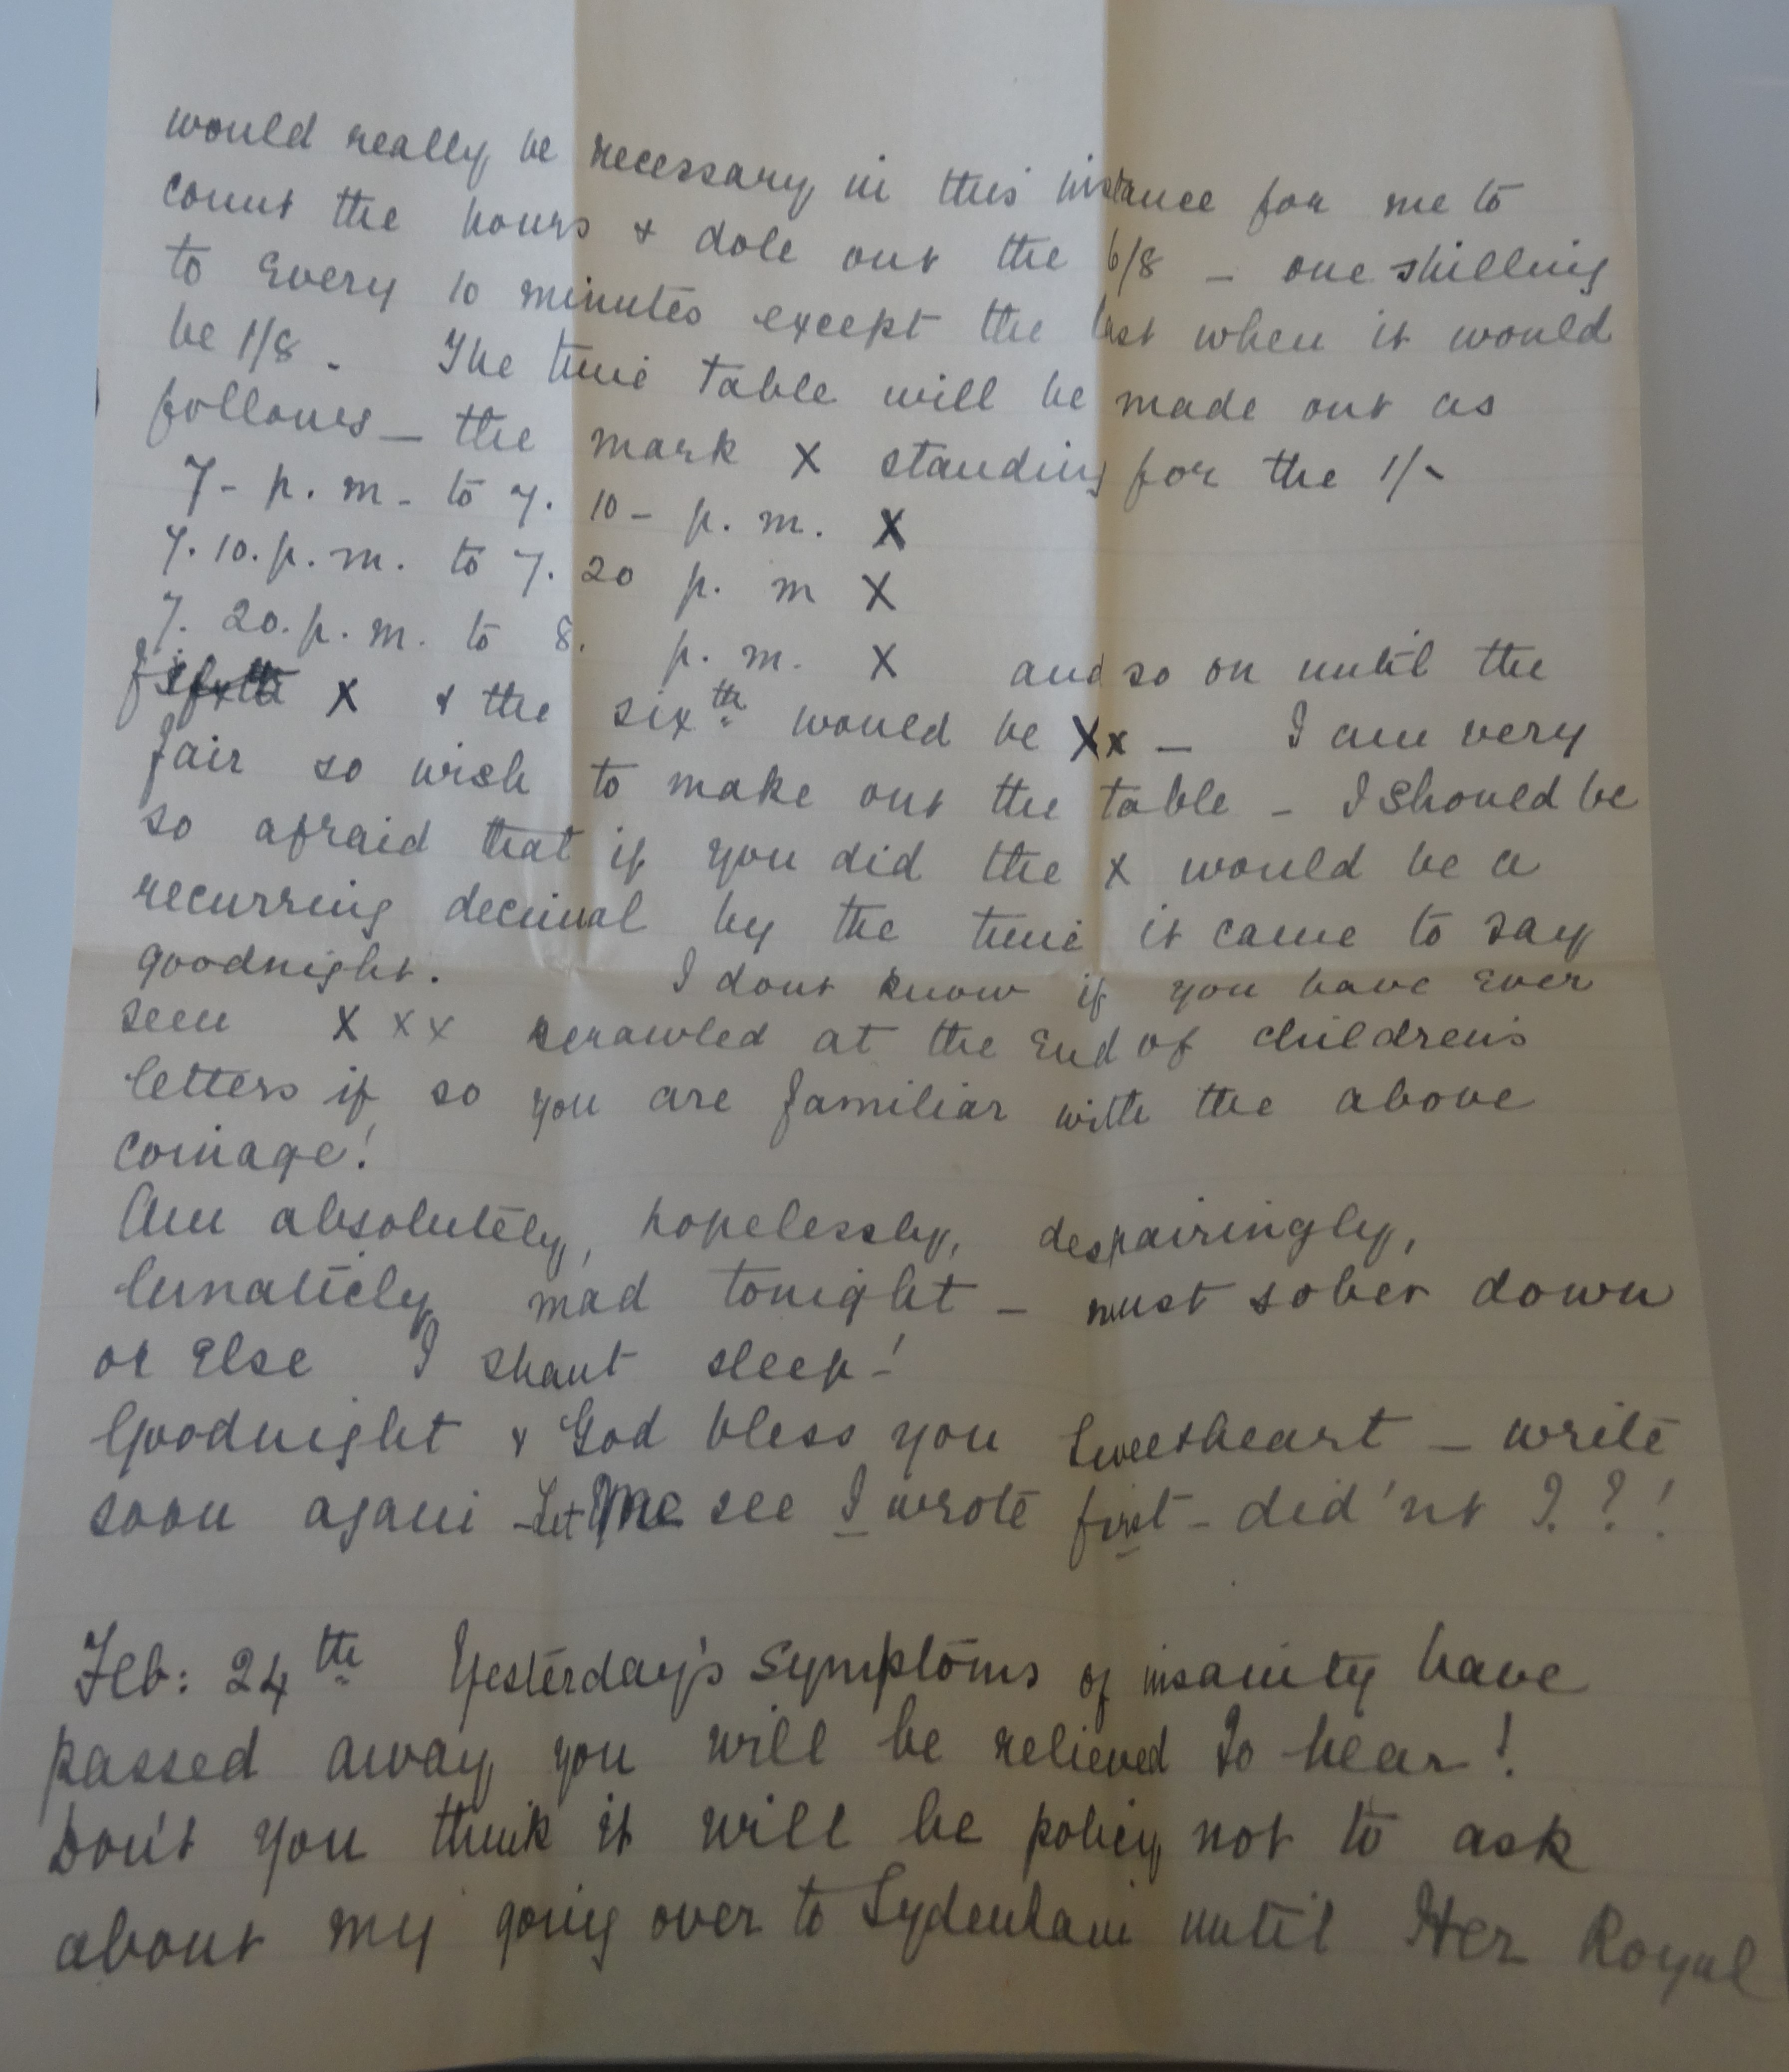 would really be necessary in this instance for me to
count the hours & dole out the 6/8 - one shilling
to every 10 minutes except the last when it would
be 1/8 - The time table will be made out as
follows - the mark X standing for the 1/-
7 - p. m - to 7. 10 - p. m. X
7. 10. p. m. to 7. 20 p. m X
7. 20. p. m. to 8. p. m. X and so on until the
X & the six th would be Xx - I am very
fair so wish to make out the table - I should be
so afraid that if you did the x would be a
recurring decimal by the time it came to say
goodnight. I dont know if you have ever
seen X X X scrawled at the end of children's
letters if so you are familiar with the above
coinage!
Am absolutely, hopelessly, despairingly,
lunaticly mad tonight - must sober down
or else I shant sleep!
Goodnight & God bless you Sweetheart - write
soon again - Let Me see I wrote first - did'nt I ? !
Feb: 24th Yesterday's symptoms of insanity have
passed away you will be relieved to hear!
Don't you think it will be policy not to ask
about my going over to Sydenham until Her Royal